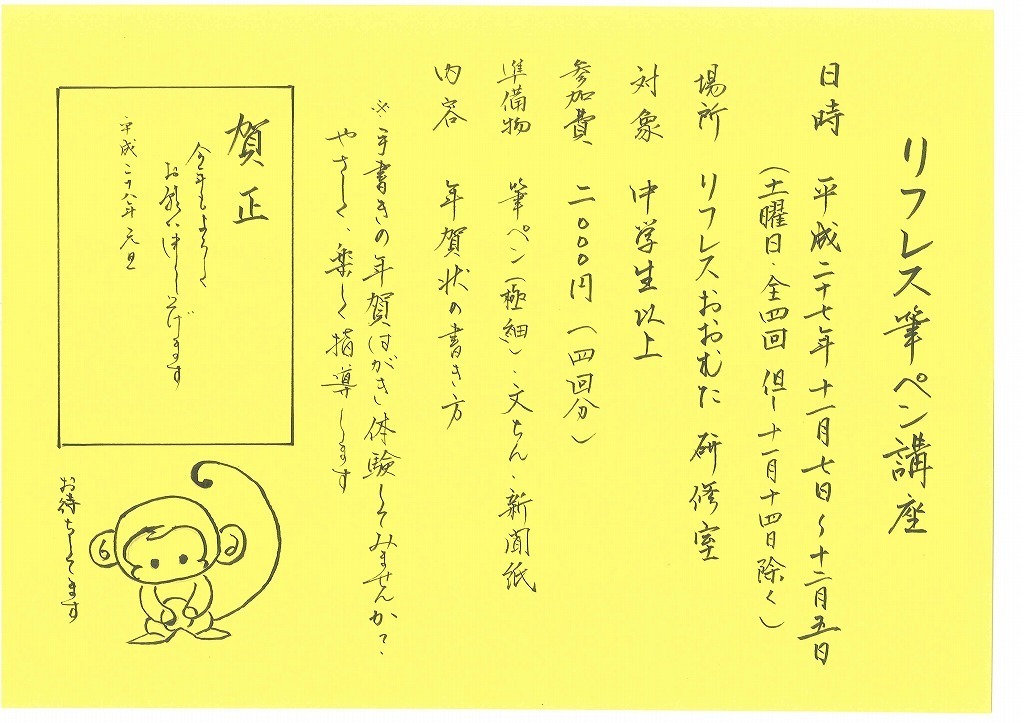 リフレス筆ペン講座
日時 平成二十七年十一月七日〜十二月五日
(土曜日・全四回 但し十一月十四日除く)
場所 リフレスおおむた 研修室
対象 中学生以上
参加費 二〇〇〇円(四回分)
準備物 筆ペン(極細)・文ちん・新聞紙
内容 年賀状の書き方
※手書きの年賀はがき体験してみませんか?
やさしく、楽しく指導します
賀正
今年もよろしく
お願い申し上げます
平成二十八年 元旦
お待ちしてます